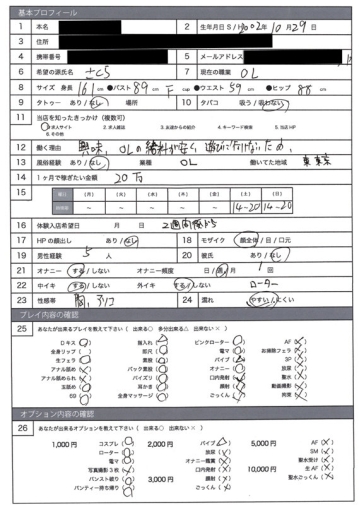 基本プロフィール
1 本名 2 生年月日 S / H 2002年 10月 29日
3 住所
4 携帯番号 5 メールアドレス
6 希望の源氏名 7 現在の職業 OL
8 サイズ 身長 161 cm ●バスト 89 cm F cup ●ウエスト 59 cm ●ヒップ 88 cm
9 タトゥー あり / なし 場所 10 タバコ 吸う / 吸わない
11 当店を知ったきっかけ(複数可)
1.求人サイト 2.求人雑誌 3.友達からの紹介 4.キーワード検索 5.当店HP
6.その他
12 働く理由 興味、OLの給料が安く
13 風俗経験 あり / なし 業種 OL 働いてた地域 東京
14 1ヶ月で稼ぎたい金額 20万
15 曜日 (月) (火) (水) (木) (金) (土) (日)
~ ~ ~ ~ ~ 14-20 14-20
16 体験入店希望日 月 日 2週間後から
17 HPの顔出し あり / なし 18 モザイク 顔全体 / 目 / 口元
19 男性経験 5 人 20 彼氏 あり / なし
21 オナニー する / しない オナニー頻度 日 / 週 / 月 1 回
22 中イキ する / しない 外イキ する / しない ローター
23 性感帯 胸、 24 濡れ やすい / にくい
プレイ内容の確認
25 あなたが出来るプレイを教えて下さい ( 出来る○ 多分出来る△ 出来ない× )
Dキス ( ○ ) 指入れ ( ○ ) ピンクローター ( ○ ) AF ( × )
全身リップ ( ) 即尺 ( ) 電マ ( ○ ) お掃除フェラ ( × )
生フェラ ( ) 素股 ( ) バイブ ( ) SP ( )
アナル舐め ( ) バック素股 ( ) オナニー ( ○ ) 放尿 ( )
アナル舐められ ( ) パイズリ ( ) 口内発射 ( ) 聖水 ( × )
玉舐め ( ) 耳かき ( ) 顔射 ( ) 動画撮影 ( × )
69 ( ) 全身マッサージ ( ) ごっくん ( ) 拘束 ( × )
オプション内容の確認
26 あなたが出来るオプションを教えて下さい ( 出来る○ 出来ない× )
1,000円 コスプレ ( ○ ) 2,000円 バイブ ( △ ) 5,000円 AF ( × )
ローター ( ○ ) 放尿 ( ) SM ( )
電マ ( ○ ) オナニー鑑賞 ( ) 聖水受け ( × )
写真撮影3枚 ( ) 口内発射 ( ) 10,000円 生AF ( × )
パンスト破り ( ○ ) 3,000円 顔射 ( ) 聖水ごっくん ( × )
パンティー持ち帰り ( ○ ) ごっくん ( )